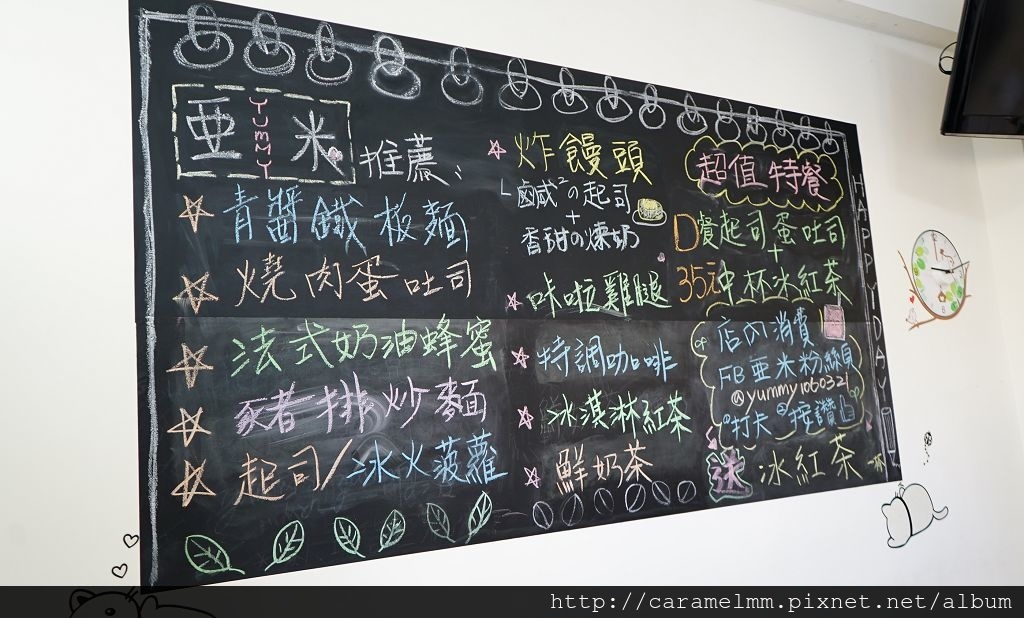 亜 Yummy 米 推薦
青醬鐵板麵
燒肉蛋吐司
法式奶油蜂蜜
豬排炒麵
起司/冰火菠蘿
炸饅頭
鹹鹹の起司
+
香甜の煉奶
咔啦雞腿
特調咖啡
冰淇淋紅茶
鮮奶茶
超值特餐
D餐起司蛋吐司
+
35元中杯冰紅茶
店內消費
FB亜米粉絲頁
@yummy1060321
①打卡②按讚
送冰紅茶一杯
HAPPY DAY
http://caramelmm.pixnet.net/album